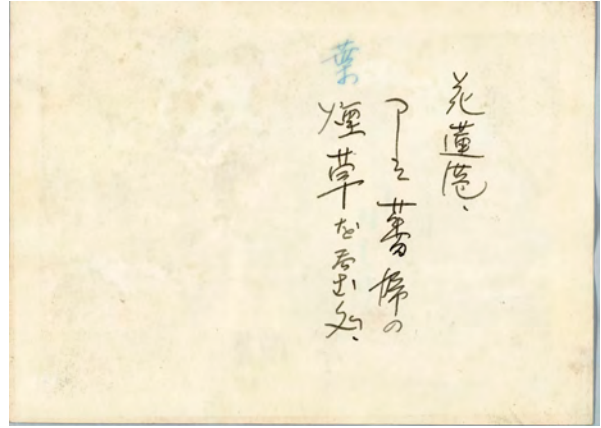 花蓮港、
アミ蕃婦の
葉煙草を呑む処、